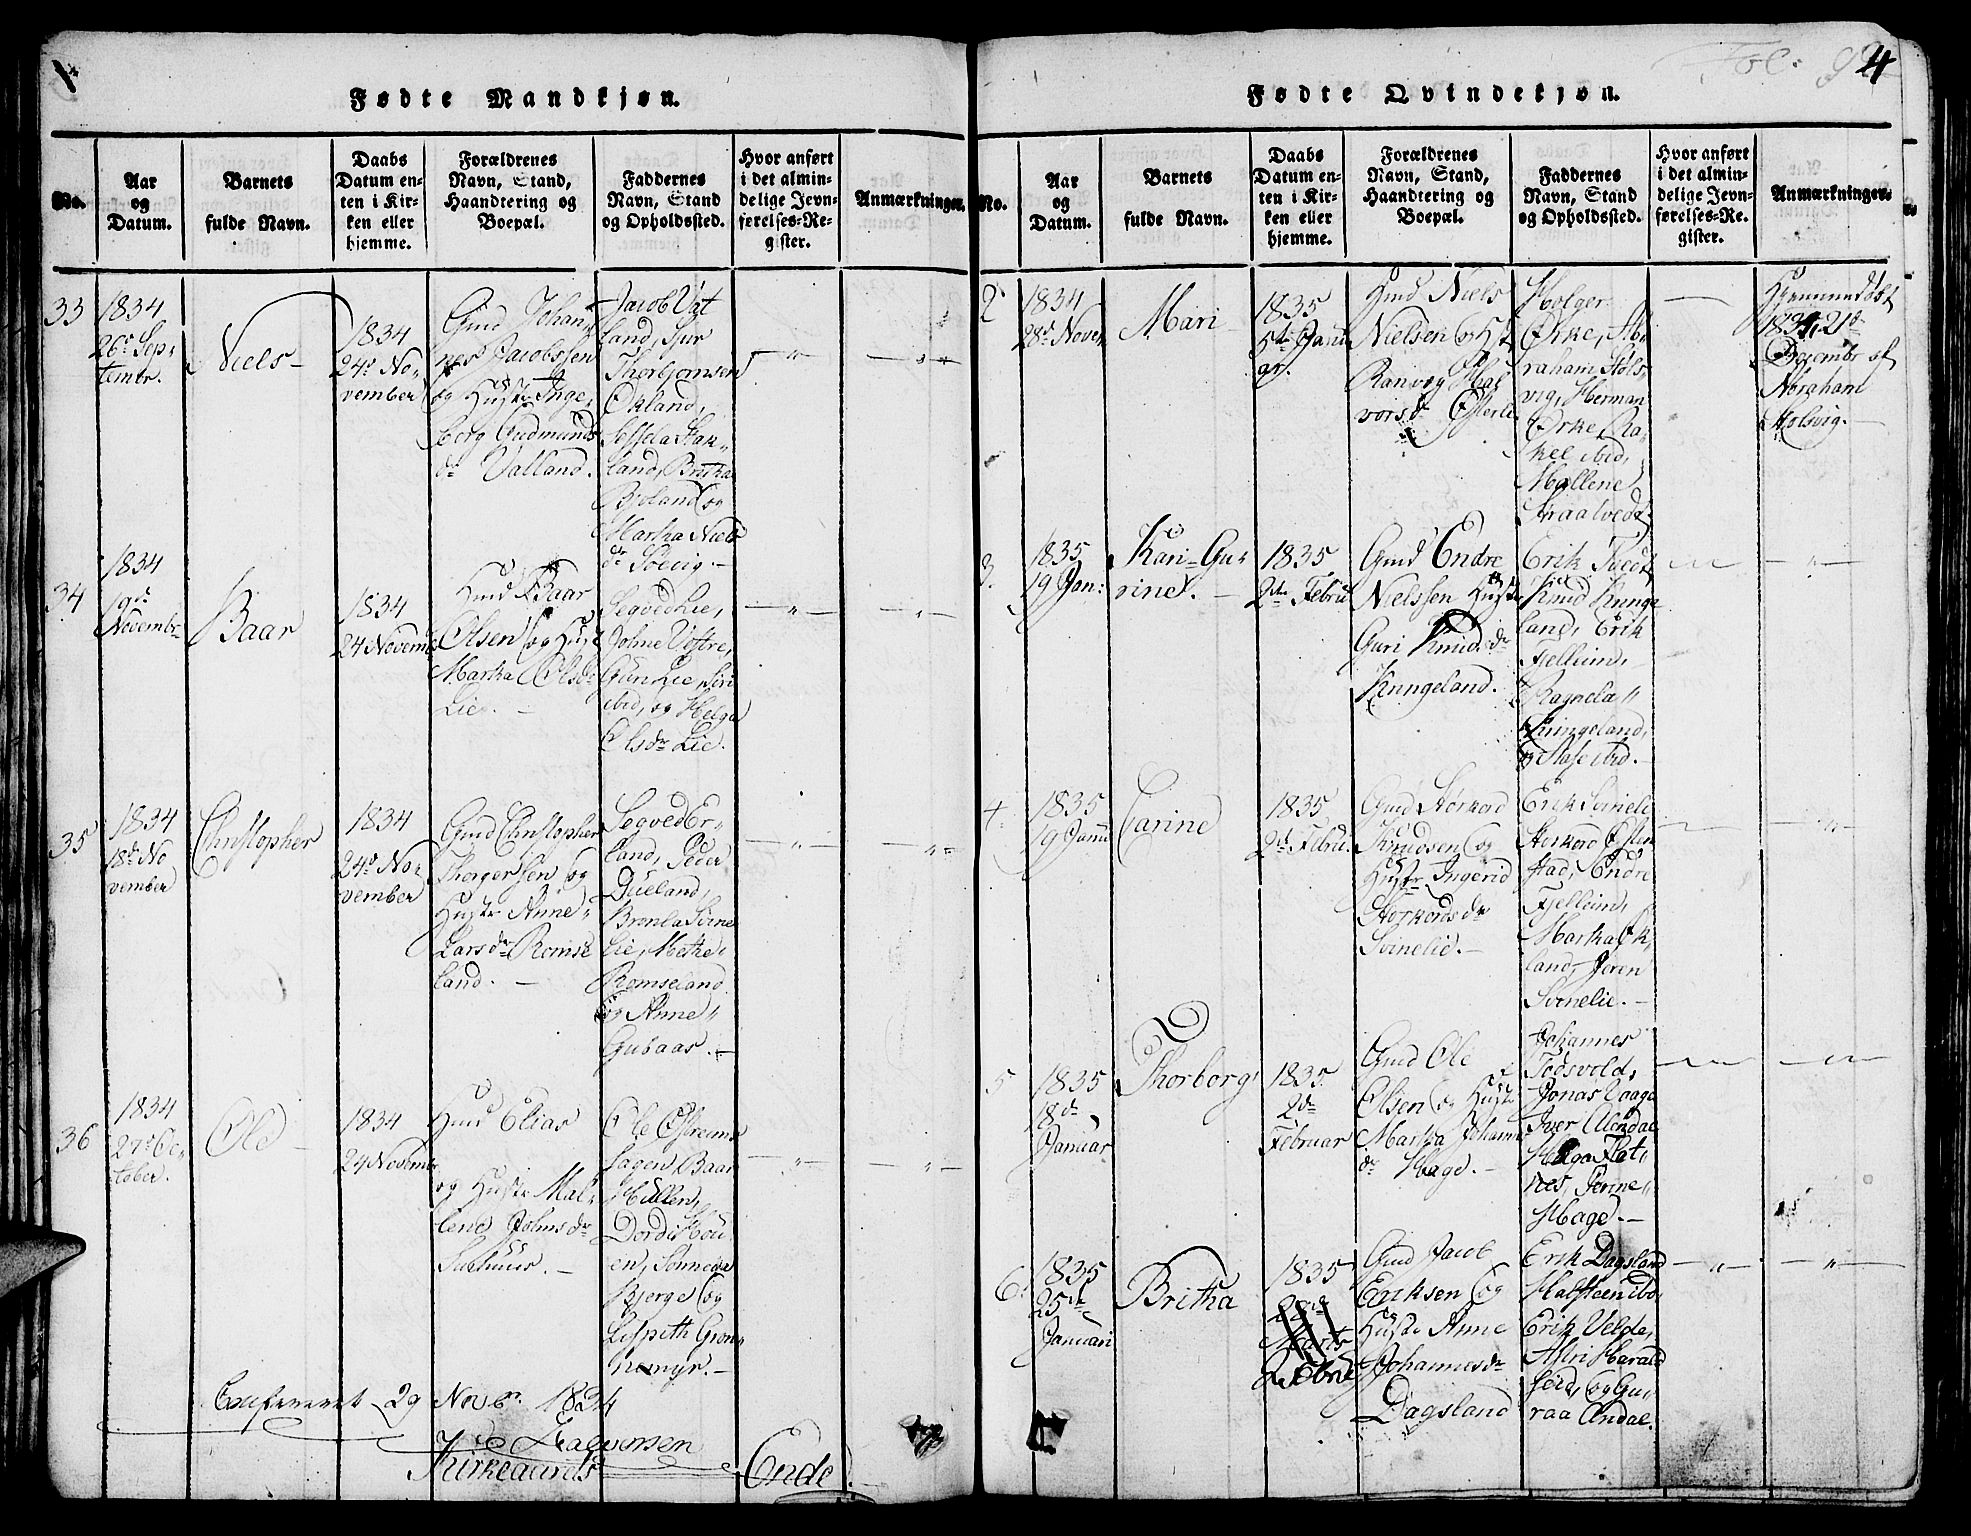 Fødte Mandkjøn.
No.
Aar
og
Datum.
Barnets
fulde Navn.
Daabs
Datum en-
ten i Kir-
ken eller
hjemme.
Forældrenes
Navn, Stand,
Haandtering og
Boepæl.
Faddernes
Navn, Stand
og Opholdssted.
Hvor anført
i det almin-
delige Jevn-
førelses-Re-
gister.
Anmærkninger.
33
1834
26de Sep-
tembr.
Niels
1834
24de No-
vember
Gmd Johan-
nes Jacobssen
og Hustr Inge-
borg Gudmunds
dr Valland.
Jacob Vat
land, Siur
Thorbjørnsen
Økland,
Sessela Stak-
land, Britha
Bjoland og
Martha Niels
dr
34
1834
19de
Novembr
Baar
1834
24 Novemb
Hmd Baar
Olsen og Hust
Martha Olsdr
Lie.
Segved Lie,
Johne Ustre,
Guri Lie, Siri
ibid, og Helga
Olsdr Lie.
35
1834
18de No
vember
Christopher
1834
24de No-
vember
Gmd Christopher
Thorgerssen og
Hustr Anne
Larsdr Romse
land.
Segved Er-
land, Peder
Dueland,
Bronla Svine
Lie, Methe
Romseland
og Anne
Gubaas.
36
1834
27de Oc-
tober.
Ole
1834
24 Novembr
Hmd Elias
og Hustr Mal-
lene Johnsdr
Ole Østreim
Baar
Hullen,
Dordi Hou
en, Sønneva
Bjerge og
Lispeth Grøn
nemyr.
29 Novbr. 1834
Halvorsen
Kirkegaards
Ende
Fol: 92
4
Fødte Qvindekjøn.
No.
Aar
og
Datum.
Barnets
fulde Navn.
Daabs
Datum en-
ten i Kir-
ken eller
hjemme.
Forældrenes
Navn, Stand,
Haandtering og
Boepæl.
Faddernes
Navn, Stand
og Opholdssted.
Hvor anført
i det almin-
delige Jevn-
førelses-Re-
gister.
Anmærkninger.
2
1834
28de Novem
Mari
1835
5te Janu
ar.
Hmd Niels
Nielsen og Hst
Ranveg Hal
vorsdr
Holger
Ørke, Ab-
raham Høls-
vig, Herman
Ørke, Ra-
kel ibid,
Mallene
Straalvedt
Hjemmedøbt
1834, 21de
Decembr af
Abraham
Holsvig.
3.
1835
19 Jan:
Kari-Gu-
rine.
1835
2de Febru
Gmd Endre
Nielssen Hustr
Guri Knudsdr
Kringeland.
Erik Tvedt,
Knud Kringe
land, Erik
Fjelleim,
Ragnela
Kringeland,
og Aase ibid.
4.
1835
19 Janu
Carine
1835
2de Febru.
Gmd Storkord
Knudsen og
Hustr Ingerid
Storkordsdr
Svinelie.
Erik Svinelie
Storkord Østen
stad, Endre
Fjelleim,
Martha Øk-
land, Joren
Svinelie.
5
1835
18de
Januar
Thorborg
1835
2de
Februar
Gmd Ole
Olsen og Hust
Martha Johanne
dr Hage.
Johannes
Todsvold,
Jonas Vaage
Iver Alendal
Helga Flat-
nes, Jorine
Hage.
6.
1835
25de
Januari
Britha
1835
22de
Marts
2 Febr
Gmd Jacob
Eriksen og
Hustr Anne
Johannesdr
Dagsland
Erik Dagsland
Halsteen ibd.
Erik Velde,
Astri Harald
seid, og Gu-
raa Andal.